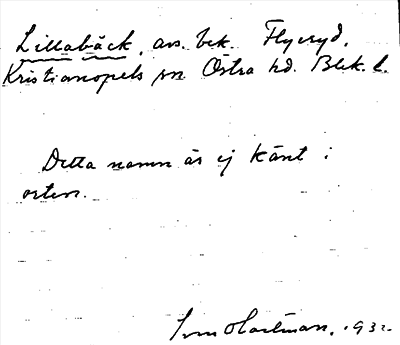 Lillabäck, avs. bek. Flyeryd,
Kristianopels sn Östra hd. Blek. l.
Detta namn är ej känt i
orten.
1932